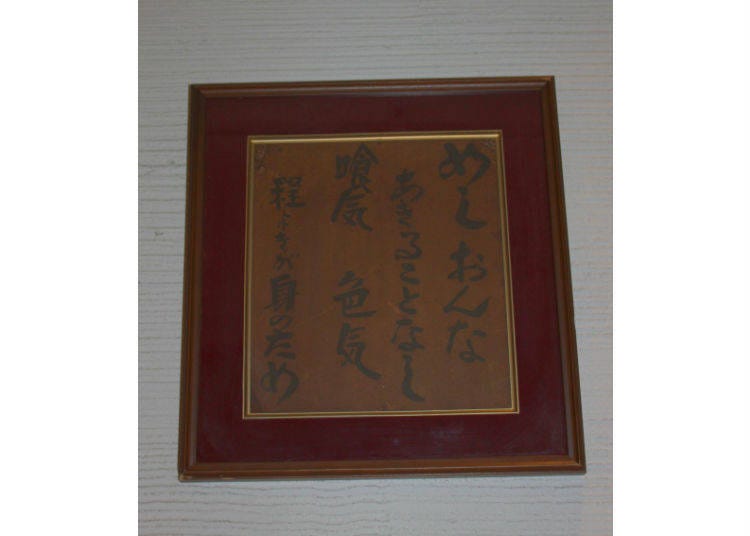 めしおんな
あきることなし
喰気 色気
程よきが身のため